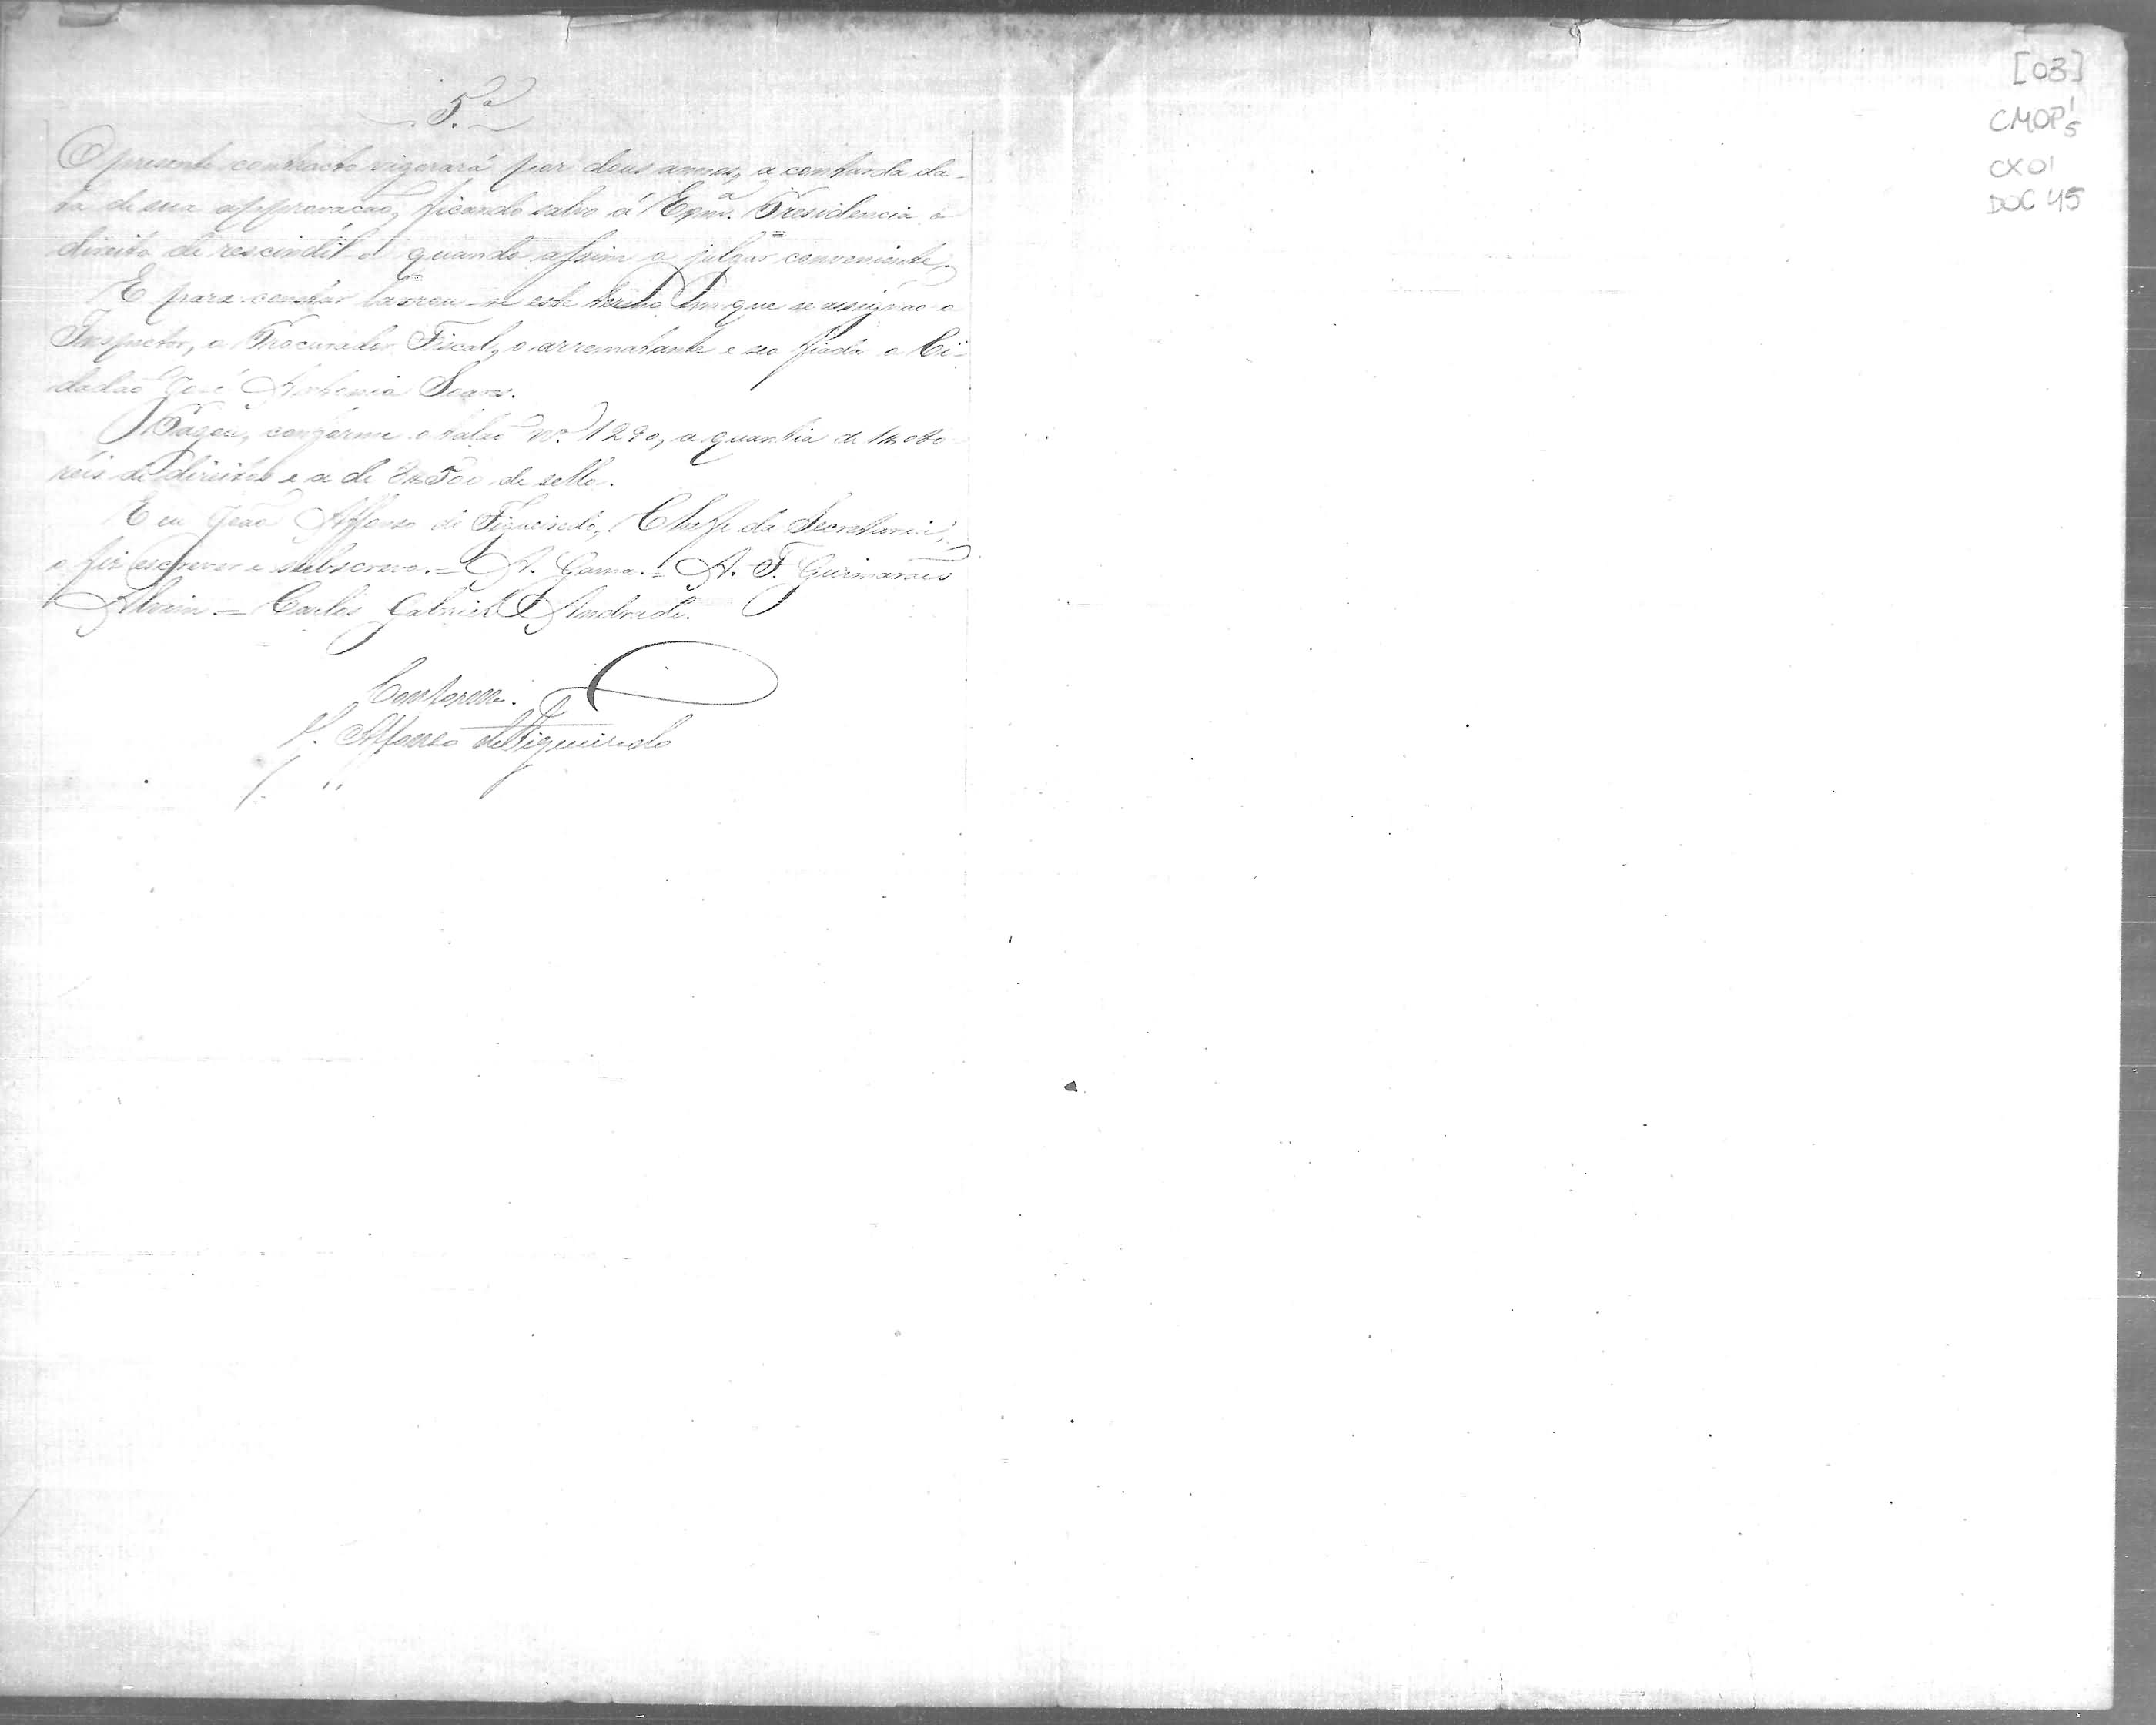 5.ª
O presente contracto vigorará por dous annos, a contar da da-
ta de sua approvação, ficando salvo á Exmª. Presidencia o
direito de rescindil-o quando assim o julgar conveniente.
E para constar lavrou-se este termo em que se assignão o
Inspector, o Procurador Fiscal, o arrematante e seo fiador o Ci-
dadão José Soares.
Pagou, conforme o talão Nº. 1290, a quantia de
réis de direitos e a de de sello.
E eu João Affonso de Figueiredo, Cheffe da Secretaria,
o fiz escrever e subscrevo. = A. Gama. = A. F. Guimarães
Alvim. = Carlos Gabriel Andrade.
Conforme.
J. Affonso de Figueiredo
[03]
CMOP
CX 01
DOC 45